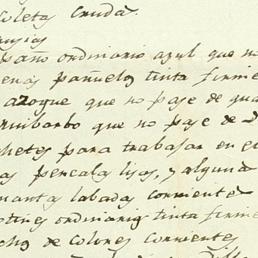 coleta Cruda.
paño ordinario azul que no
pañuelo tinta firme
azogue que no pase de qua
Ruibarbo que no pase de D
hetes para trabajar en el
as percala lisos, y alguna
manta labada corriente
ordinario tinta firme
de colores corrientes